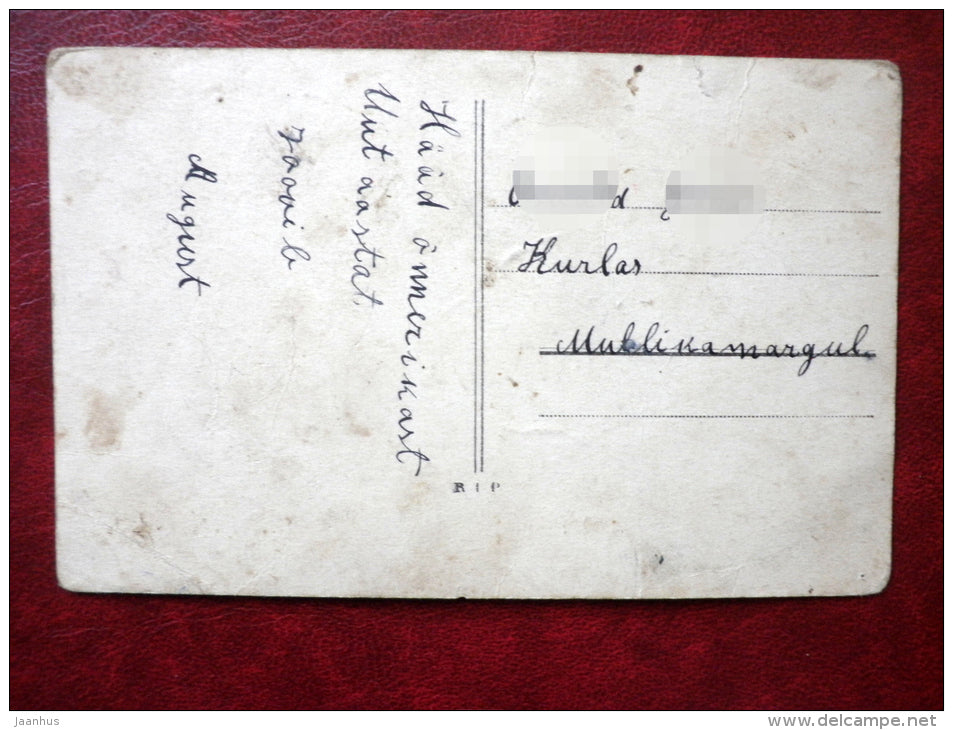 Hääd õnnerikast
Uut aastat
soovib
August
Kurlas
Mullikamargul
R 1 P
Jaanhus
www.delcampe.net